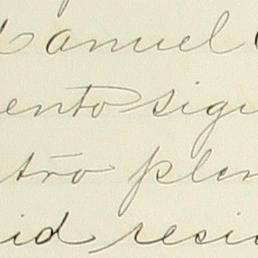 Manuel
ento sigu
tro plen
id resi